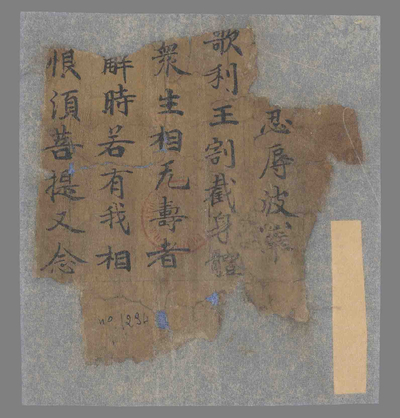 忍辱波羅
歌利王割截身體
衆生相无壽者
解時若有我相
恨須菩提又念